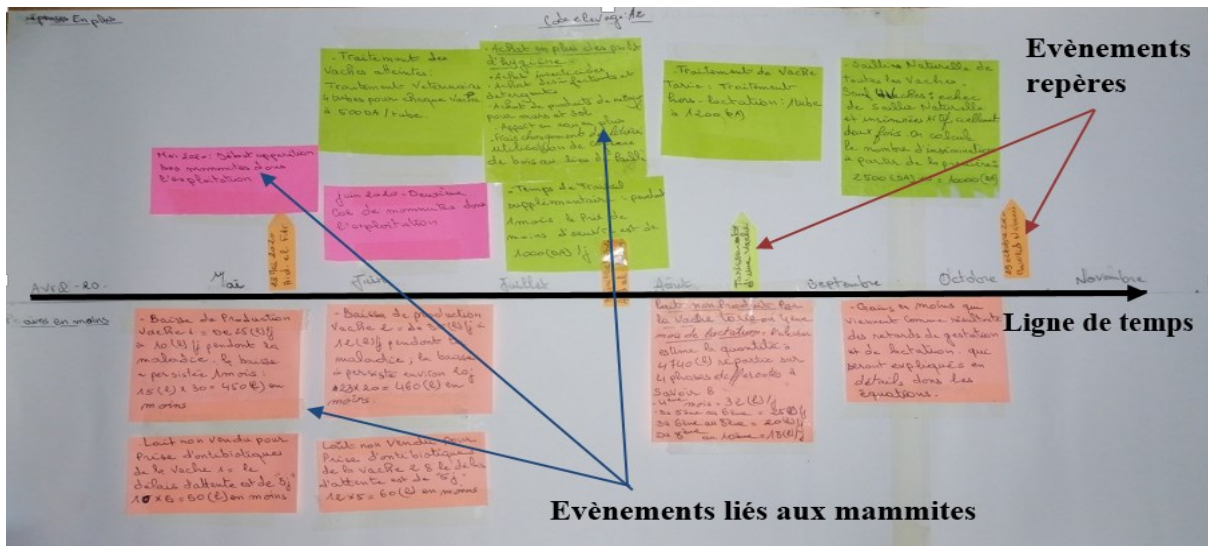 Dépenses En plus
Code elevage: A2
- Traitement des
vaches atteintes:
Traitement Vétérinaire
4 tubes pour chaque vache
à 500 DA / tube.
- Achat en plus des pdts
d'hygiène -
- Achat insecticides
- Achat désinfectants et
detergents
- Achat de produits de nettoy
pour murs et sol
- Apport en eau en plus
- Frais changement de litière
utilisation de
de bois au lieu de paille
- Traitement de Vache
Tarie: Traitement
hors-lactation: 1 tube
à 1200 (DA)
- Saillies Naturelle de
toutes les Vaches.
Sauf 4 vaches: echec
de saillie Naturelle
et inséminées
deux fois. On calcule
le nombre d'insémination
à partir de la première
2500 (DA) = 10000 (DA)
Evènements
repères
Mai 2020: Début apparition
des mammites dans
l'exploitation
juin 2020 - Deuxième
Cas de mammites dans
l'exploitation
- Temps de Travail
supplémentaire: pendant
1 mois, le Prix de
main d'œuvre est de
1000 (DA) /j
Aid el Fitr
Tarissement
d'une Vache
AVRIL - 20
Mai
Juin
Juillet
Août
Septembre
Octobre
Novembre
Ligne de temps
en moins
- Baisse de Production
Vache 1 = De 25 (l)/j
à 10 (l)/j pendant la
maladie, la baisse
a persistée 1 mois:
15 (l) x 30 = 450 (l) en
moins
- Baisse de production
Vache 2 = de 35 (l)/j à
12 (l)/j pendant la
maladie; la baisse
a persisté environ 20j
23 x 20 = 460 (l) en
moins
Lait non Produit Par
la Vache tarie en 4ème
mois de lactation.
estime la quantité à
4740 (l) répartie sur
4 phases
Savoir:
- 4ème mois = 32 (l)/j
- du 5ème au 6ème = 25 (l)/j
du 6ème au 8ème = 20 (l)/j
du 8ème au 10ème = 18 (l)/j
- Gains en moins qui
viennent comme résultante
des retards de gestation
et de lactation. que
seront expliqués en
détails dans les
équations.
- Lait non vendu pour
Prise d'antibiotiques
de la vache 1 = le
délais d'attente est de "5j"
10 x 5 = 50 (l) en moins
Lait non Vendu Pour
Prise d'antibiotiques
de la vache 2 le délai
d'attente est de "5j"
12 x 5 = 60 (l) en moins
Evènements liés aux mammites